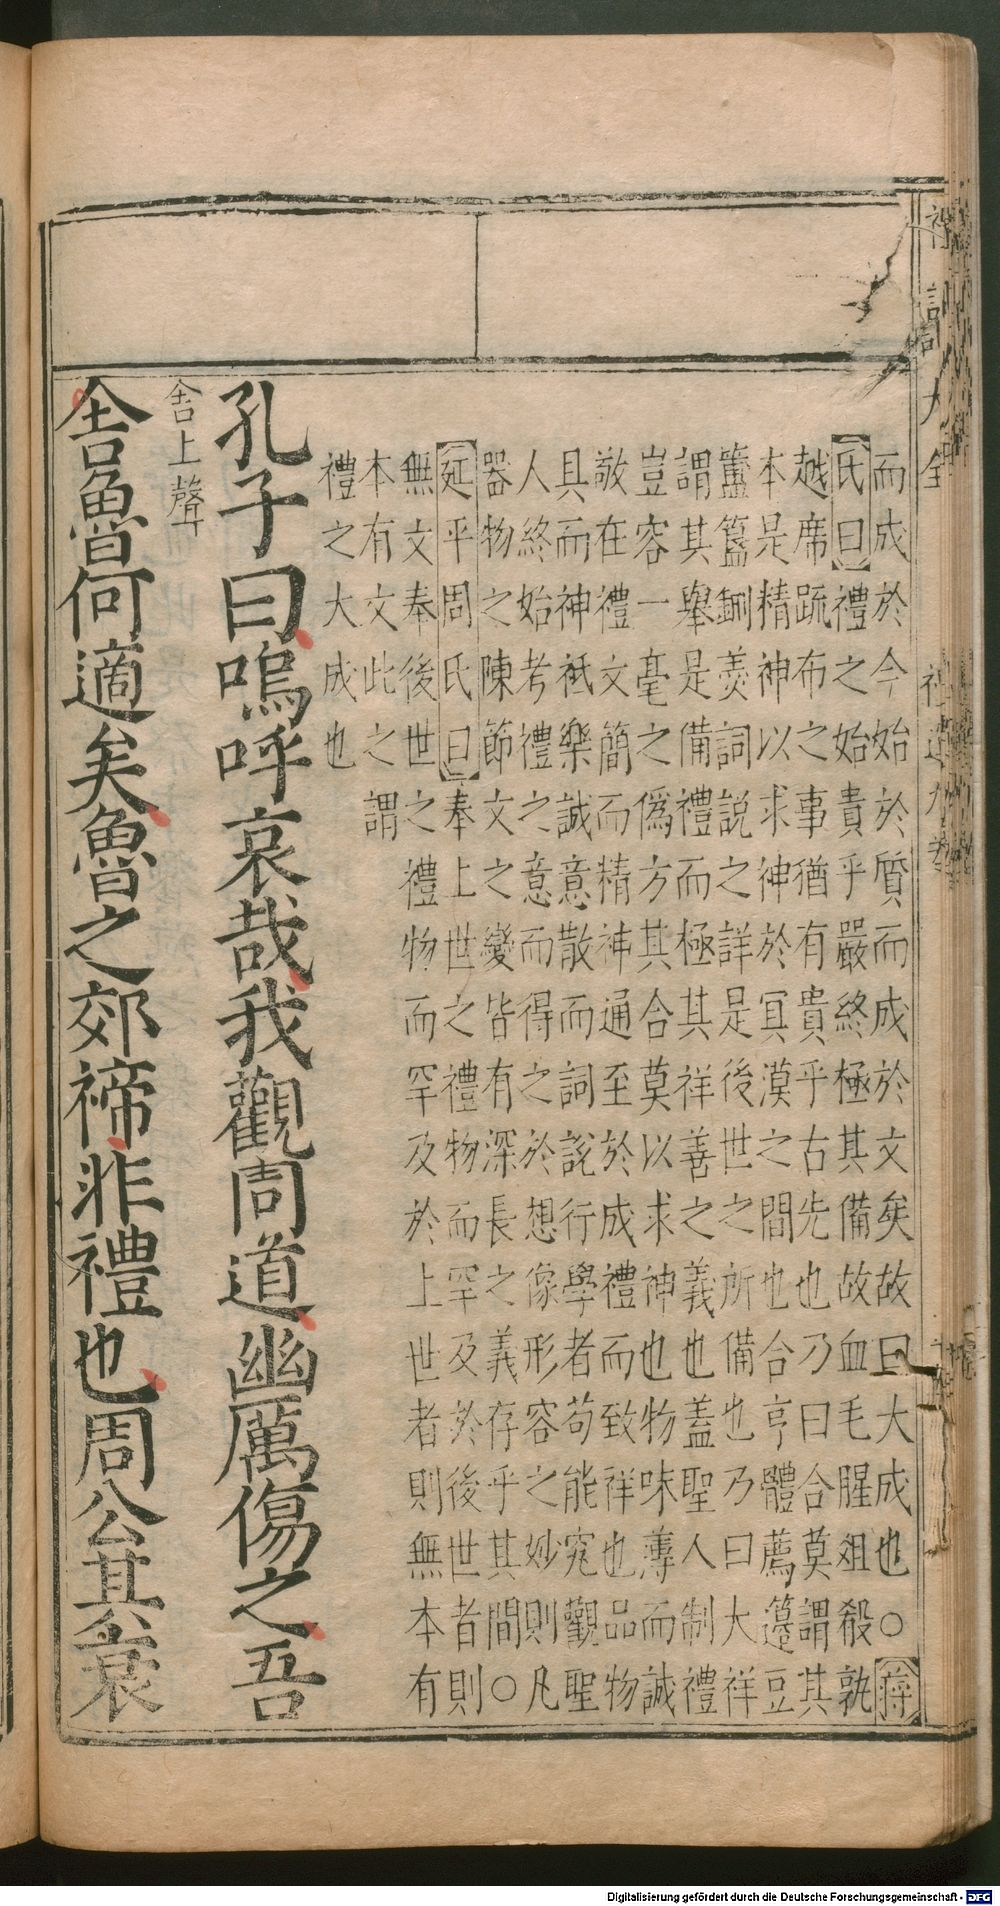 而成於今始於質而成於文矣故曰大成也○蔣
氏曰禮之始貴乎嚴終極其備故血毛腥俎殽孰
越席疏布之事猶有貴乎古先也乃曰合莫謂其
本是精神以求神於冥漠之間也合亨體薦籩豆
簠簋鉶羮詞說之詳是後世之所備也乃曰大祥
謂其舉是備禮而極其祥善之義也蓋聖人制禮
豈容一毫之僞方其合莫以求神也物味薄而誠
敬在禮文簡而精神通至於成禮而致祥也品物
具而神祇樂誠意散而詞說行學者苟能究觀聖
人終始考禮之意而得之於想像形容之妙則凡
器物之陳節文之變皆有深長之義存乎其間○
延平周氏曰奉上世之禮物而罕及於後世者則
無文奉後世之禮物而罕及於上世者則無本有
本有文此之謂
禮之大成也
孔子曰嗚呼哀哉我觀周道幽厲傷之吾
舎上聲
舎魯何適矣魯之郊禘非禮也周公其衰
禮記大全